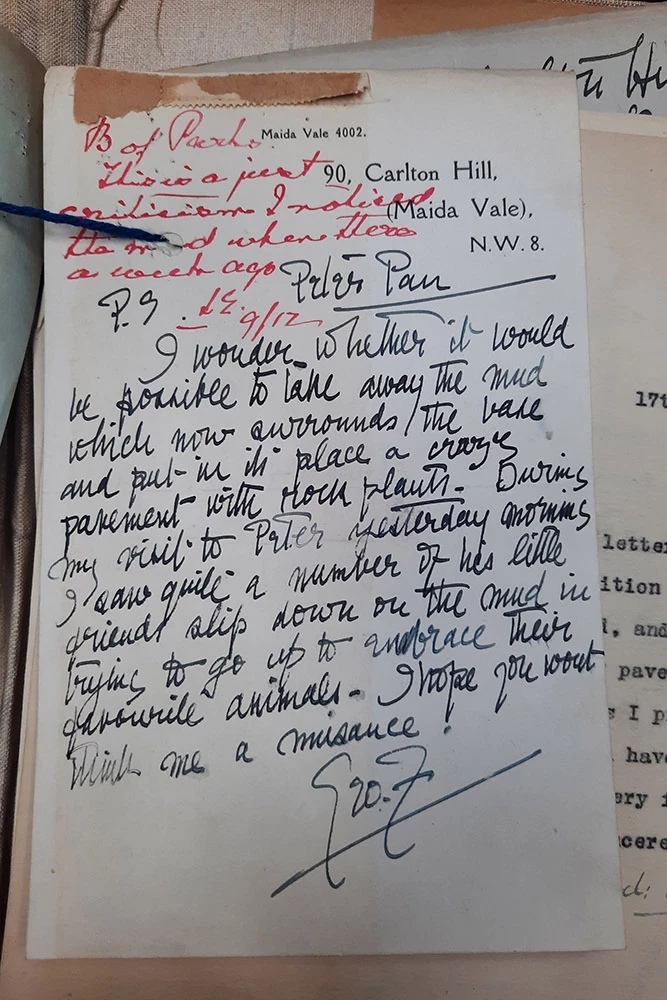 Maida Vale 4002.
90, Carlton Hill,
(Maida Vale),
N.W. 8.
B of Parks.
This is a just
criticism I noticed
the mud when there
a week ago
9/12
Peter Pan
P.S
I wonder whether it would
be possible to take away the mud
which now surrounds the base
and put in its place a crazy
pavement with rock plants. During
my visit to Peter yesterday morning
I saw quite a number of his little
friends slip down on the mud in
trying to go up to embrace their
favourite animals. I hope you wont
think me a nuisance!
Geo. F
17t
letter
ition
, and
pave
I p
hav
ery
cere